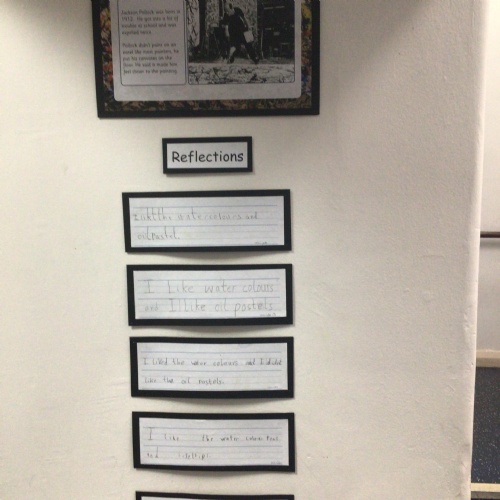 Jackson Pollock was born in
1912. He got into a lot of
trouble at school and was
expelled twice.
Pollock didn't paint on an
easel like most painters, he
put his canvases on the
floor. He said it made him
feel closer to the painting.
Reflections
I like water colours and
oil pastel
I Like water colours
and I Like oil pastels
I liked the water colours and I didnt
like the oil pastels.
I like the water colour
and